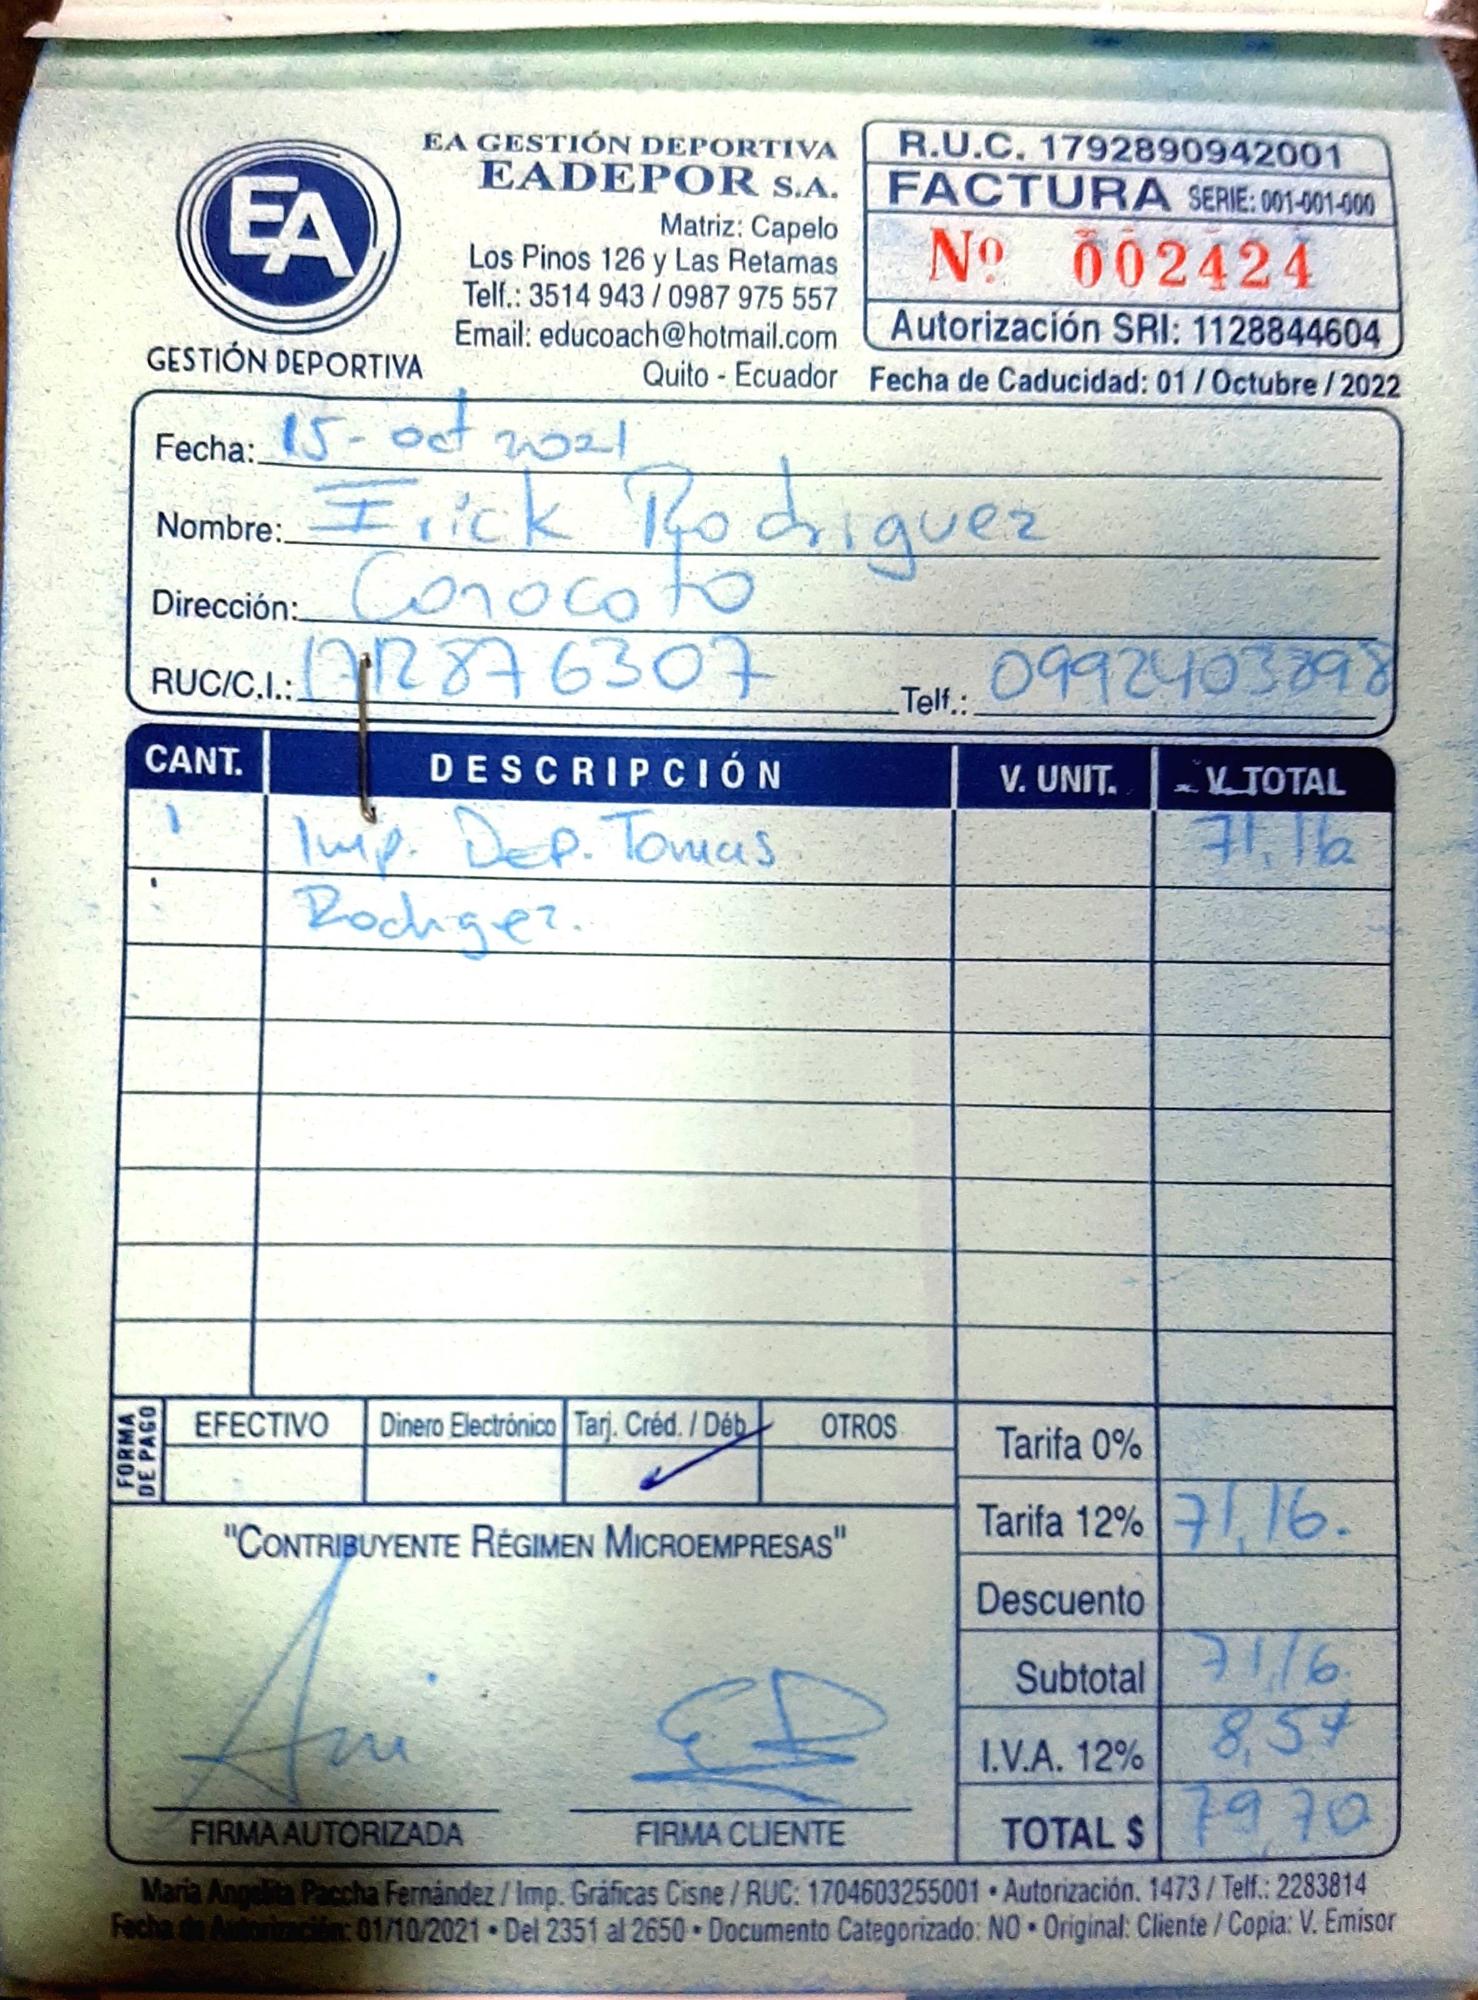 EA
GESTIÓN DEPORTIVA
EA GESTIÓN DEPORTIVA
EADEPOR S.A.
Matriz: Capelo
Los Pinos 126 y Las Retamas
Telf.: 3514 943 / 0987 975 557
Email: educoach@hotmail.com
Quito - Ecuador
R.U.C. 1792890942001
FACTURA SERIE: 001-001-000
Nº 002424
Autorización SRI: 1128844604
Fecha de Caducidad: 01 / Octubre / 2022
Fecha: 15-oct 2021
Nombre: Erick Rodriguez
Dirección: Conocoto
RUC/C.I.: 1712876307 Telf.: 0992403898
CANT. DESCRIPCIÓN V. UNIT. V. TOTAL
1 Imp. Dep. Tomas 71,16
Rodrigez.
FORMA DE PAGO EFECTIVO Dinero Electrónico Tarj. Créd. / Déb OTROS
Tarifa 0%
Tarifa 12% 71,16.
Descuento
Subtotal 71,16
I.V.A. 12% 8,54
TOTAL $ 79,70
"CONTRIBUYENTE RÉGIMEN MICROEMPRESAS"
FIRMA AUTORIZADA FIRMA CLIENTE
María Angelita Paccha Fernández / Imp. Gráficas Cisne / RUC: 1704603255001 • Autorización. 1473 / Telf.: 2283814
Fecha de Autorización: 01/10/2021 • Del 2351 al 2650 • Documento Categorizado: NO • Original: Cliente / Copia: V. Emisor